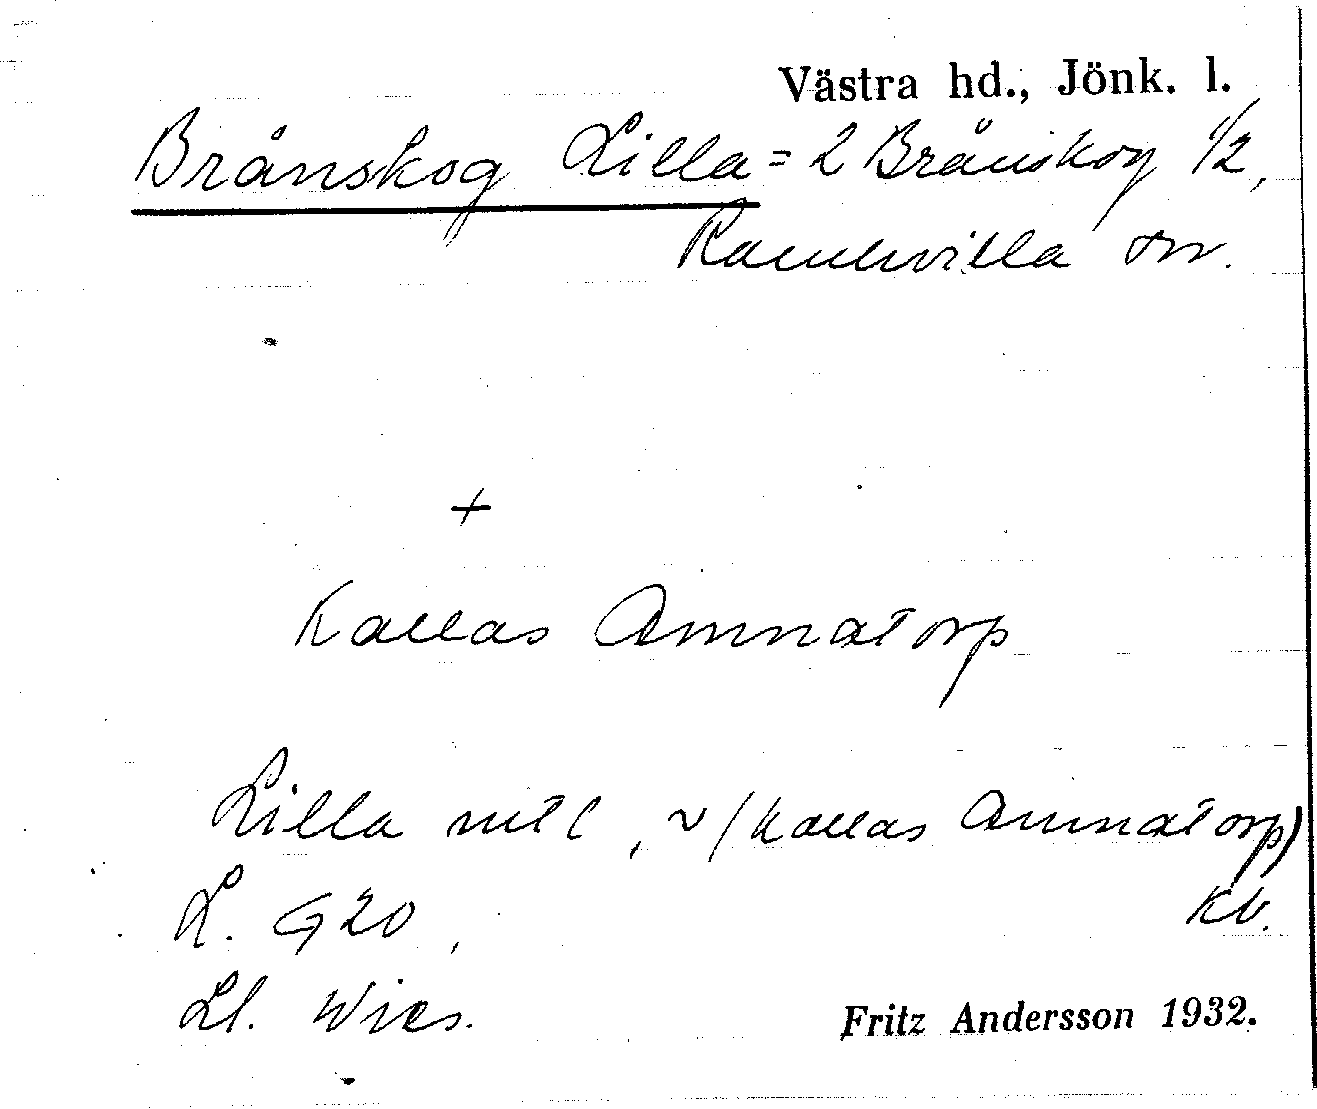 Västra hd., Jönk. l.
Brånskog Lilla = 2 Brånskog 1/2,
Ramkvilla sn.
+
Kallas Annnatorp
Lilla mtl, v/kallas Annnatorp)
Kb.
L. G20,
Ll. Wies.
Fritz Andersson 1932.